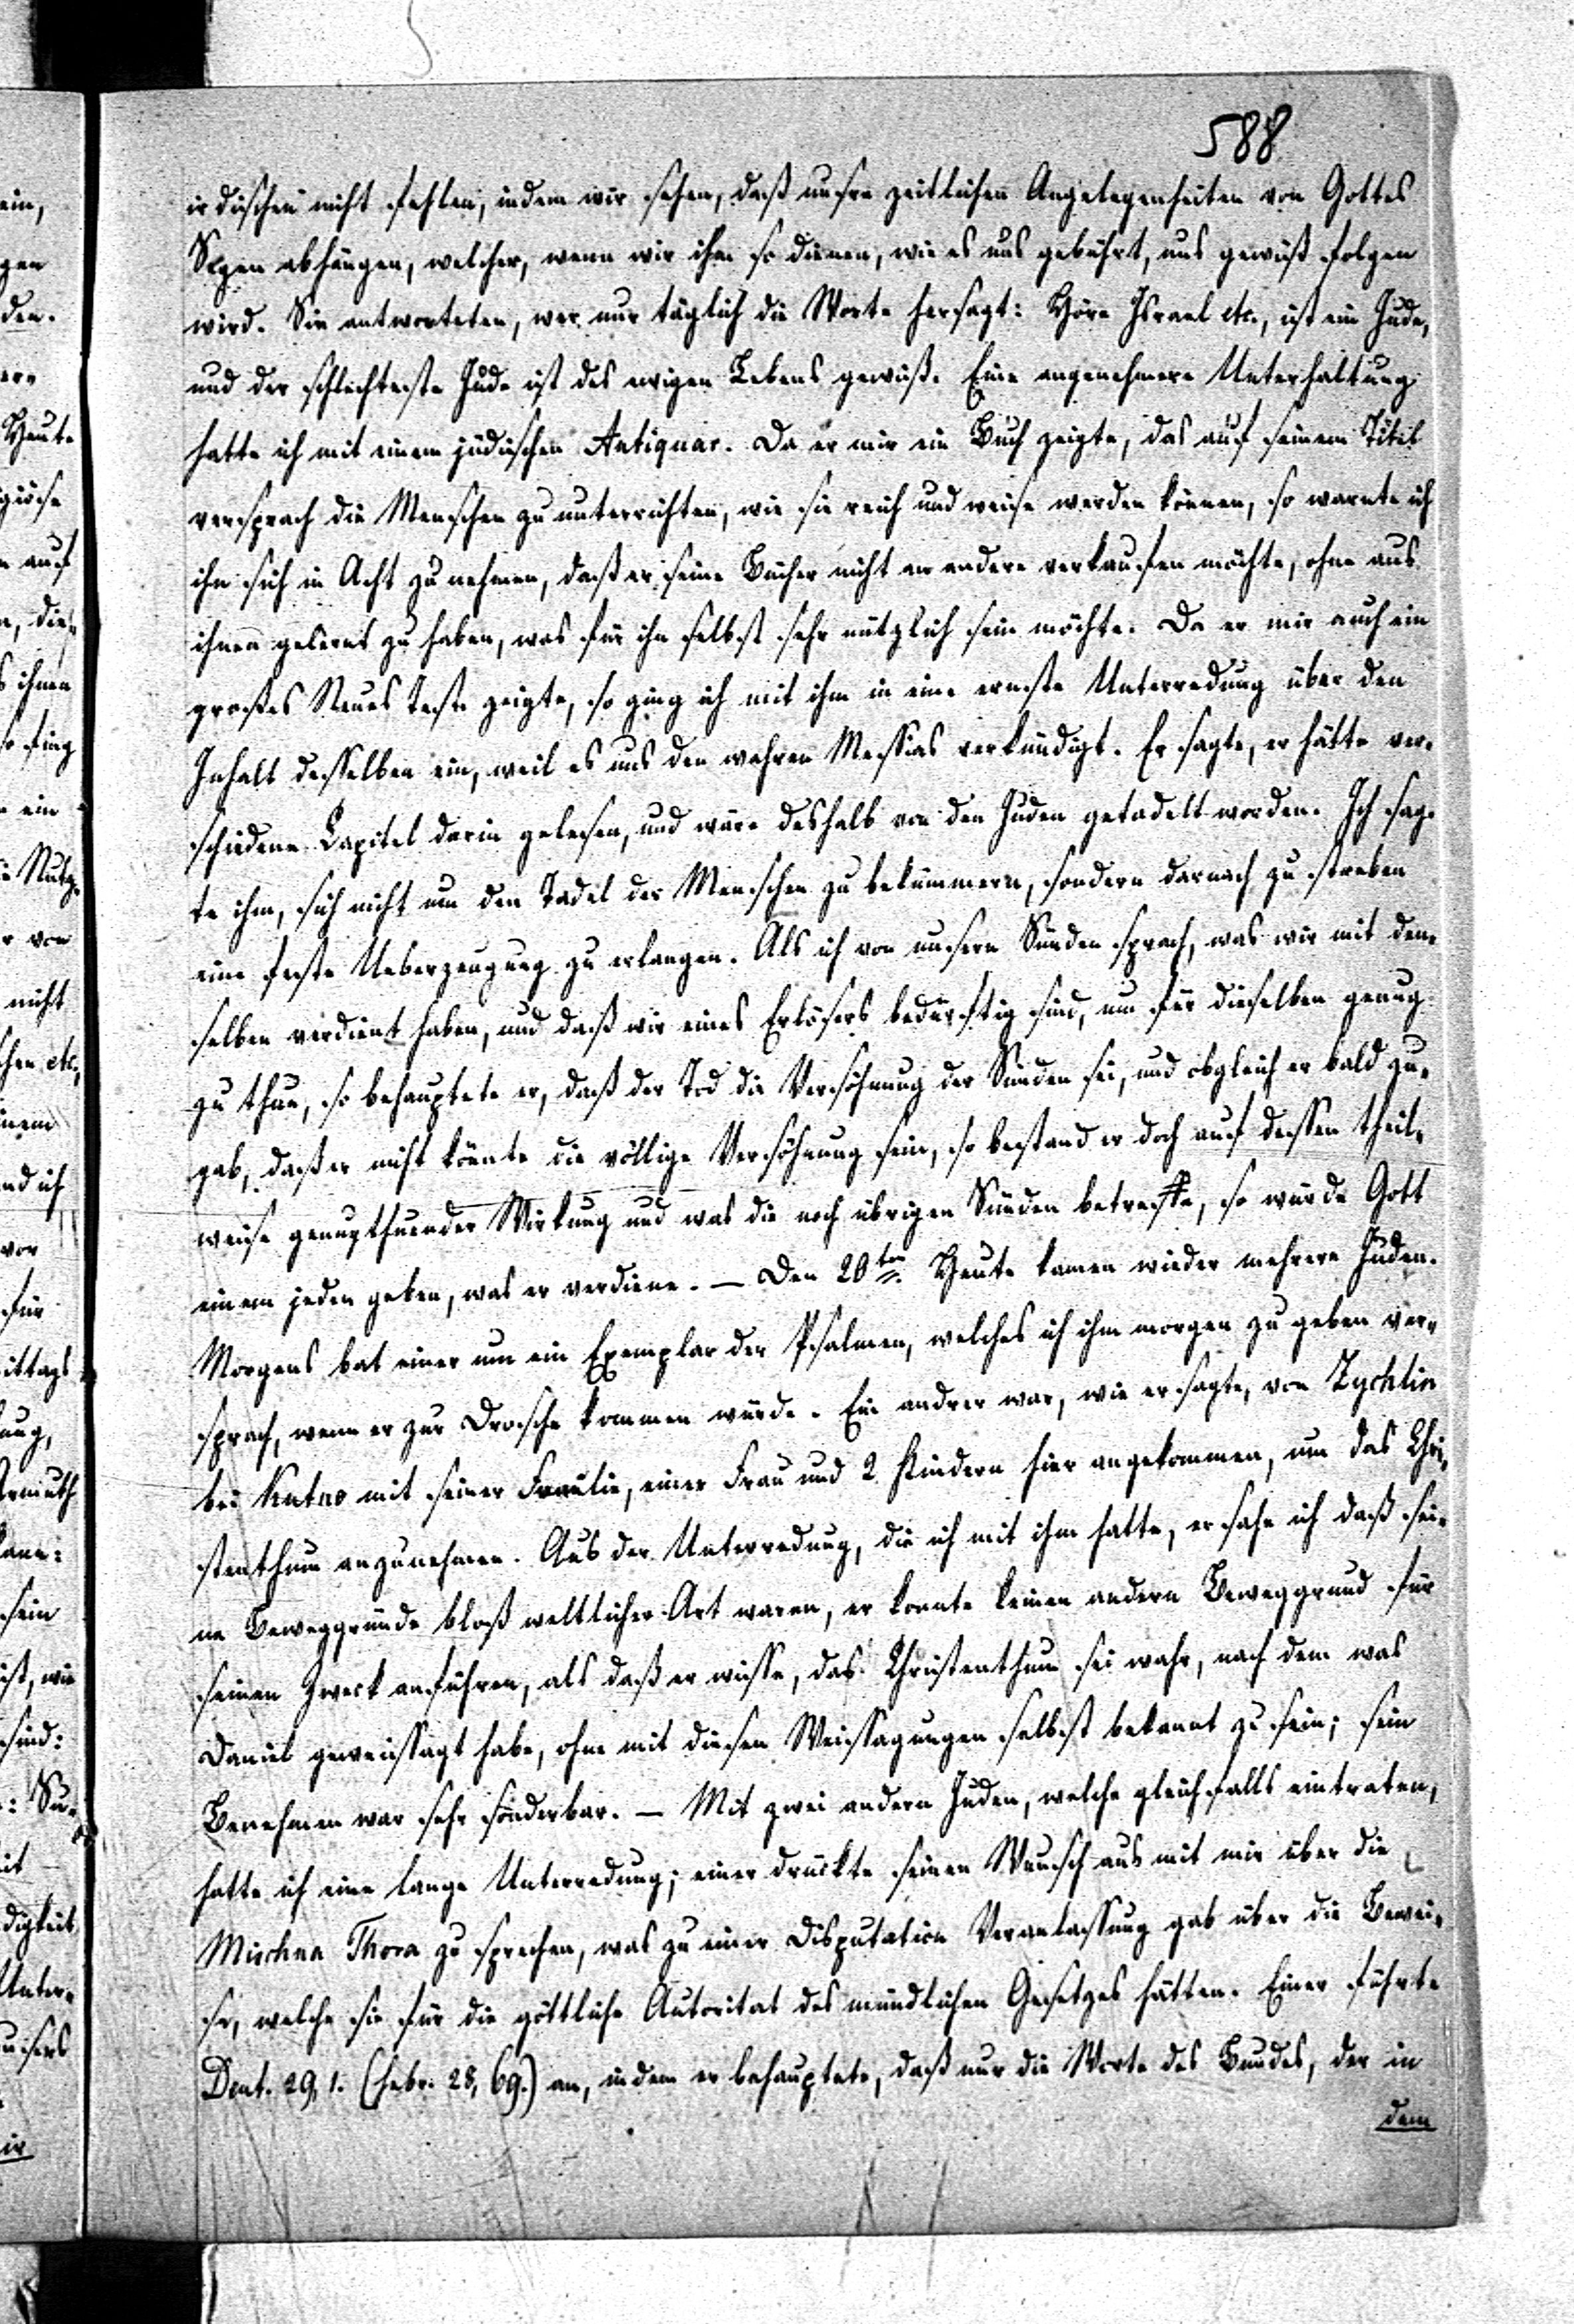 588
irdischen nicht fehlen, indem wir sehen, daß unsre zeitlichen Angelegenheiten von Gottes
Segen abhängen, welcher, wenn wir ihm so dienen, wie es uns gebührt, uns gewiß folgen
wird. Sie antworteten, wer nur täglich die Worte hersagt: Höre Israel etc., ist ein Jude,
und der schlechteste Jude ist des ewigen Lebens gewiß. Eine angenehmere Unterhaltung
hatte ich mit einem jüdischen Antiquar. Da er mir ein Buch zeigte, das auf seinem Titel
versprach die Menschen zu unterrichten, wie sie reich und weise werden können, so warnte ich
ihn sich in Acht zu nehmen, daß er seine Bücher nicht an andere verkaufen möchte, ohne aus
ihnen gelernt zu haben, was für ihn selbst sehr nützlich sein möchte. Da er mir auch ein
großes Neues Test. zeigte, so ging ich mit ihm in eine ernste Unterredung über den
Inhalt desselben ein, weil es uns den wahren Messias verkündigt. Er sagte, er hätte ver-
schiedene Capitel darin gelesen, und wäre deshalb von den Juden getadelt worden. Ich sag-
te ihm, sich nicht um den Tadel der Menschen zu bekümmern, sondern darnach zu streben
eine feste Ueberzeugung zu erlangen. Als ich von unsern Sünden sprach, was wir mit den-
selben verdient haben, und daß wir eines Erlösers bedürftig sind, um für dieselben genug
zu thun, so behauptete er, daß der Tod die Versöhnung der Sünden sei, und obgleich er bald zu-
gab, daß er nicht könnte die völlige Versöhnung sein, so bestand er doch auf dessen theil-
weise genugthuender Wirkung und was die noch übrigen Sünden betreffe, so würde Gott
einem jeden geben, was er verdiene. — Den 20ten Heute kamen wieder mehrere Juden.
Morgens bat einer um ein Exemplar der Psalmen, welches ich ihm morgen zu geben ver-
sprach, wenn er zur Drosche kommen würde. Ein andrer war, wie er sagte, von Zychlin
bei Kutno mit seiner Familie, einer Frau und 2 Kindern hier angekommen, um das Chri-
stenthum anzunehmen. Aus der Unterredung, die ich mit ihm hatte, ersahe ich daß sei-
ne Beweggründe bloß weltlicher Art waren, er konnte keinen andern Beweggrund für
seinen Zweck anführen, als daß er wisse, das Christenthum sei wahr, nach dem was
Daniel geweissagt habe, ohne mit diesen Weissagungen selbst bekannt zu sein; sein
Benehmen war sehr sonderbar. — Mit zwei andern Juden, welche gleichfalls eintraten,
hatte ich eine lange Unterredung; einer drückte seinen Wunsch aus mit mir über die
Mischna Thora zu sprechen, was zu einer Disputation Veranlassung gab über die Bewei-
se, welche sie für die göttliche Autoritat des mündlichen Gesetzes hätten. Einer führte
Deut. 29, 1. (hebr. 28, 69.) an, indem er behauptete, daß nur die Worte des Bundes, der in
dem